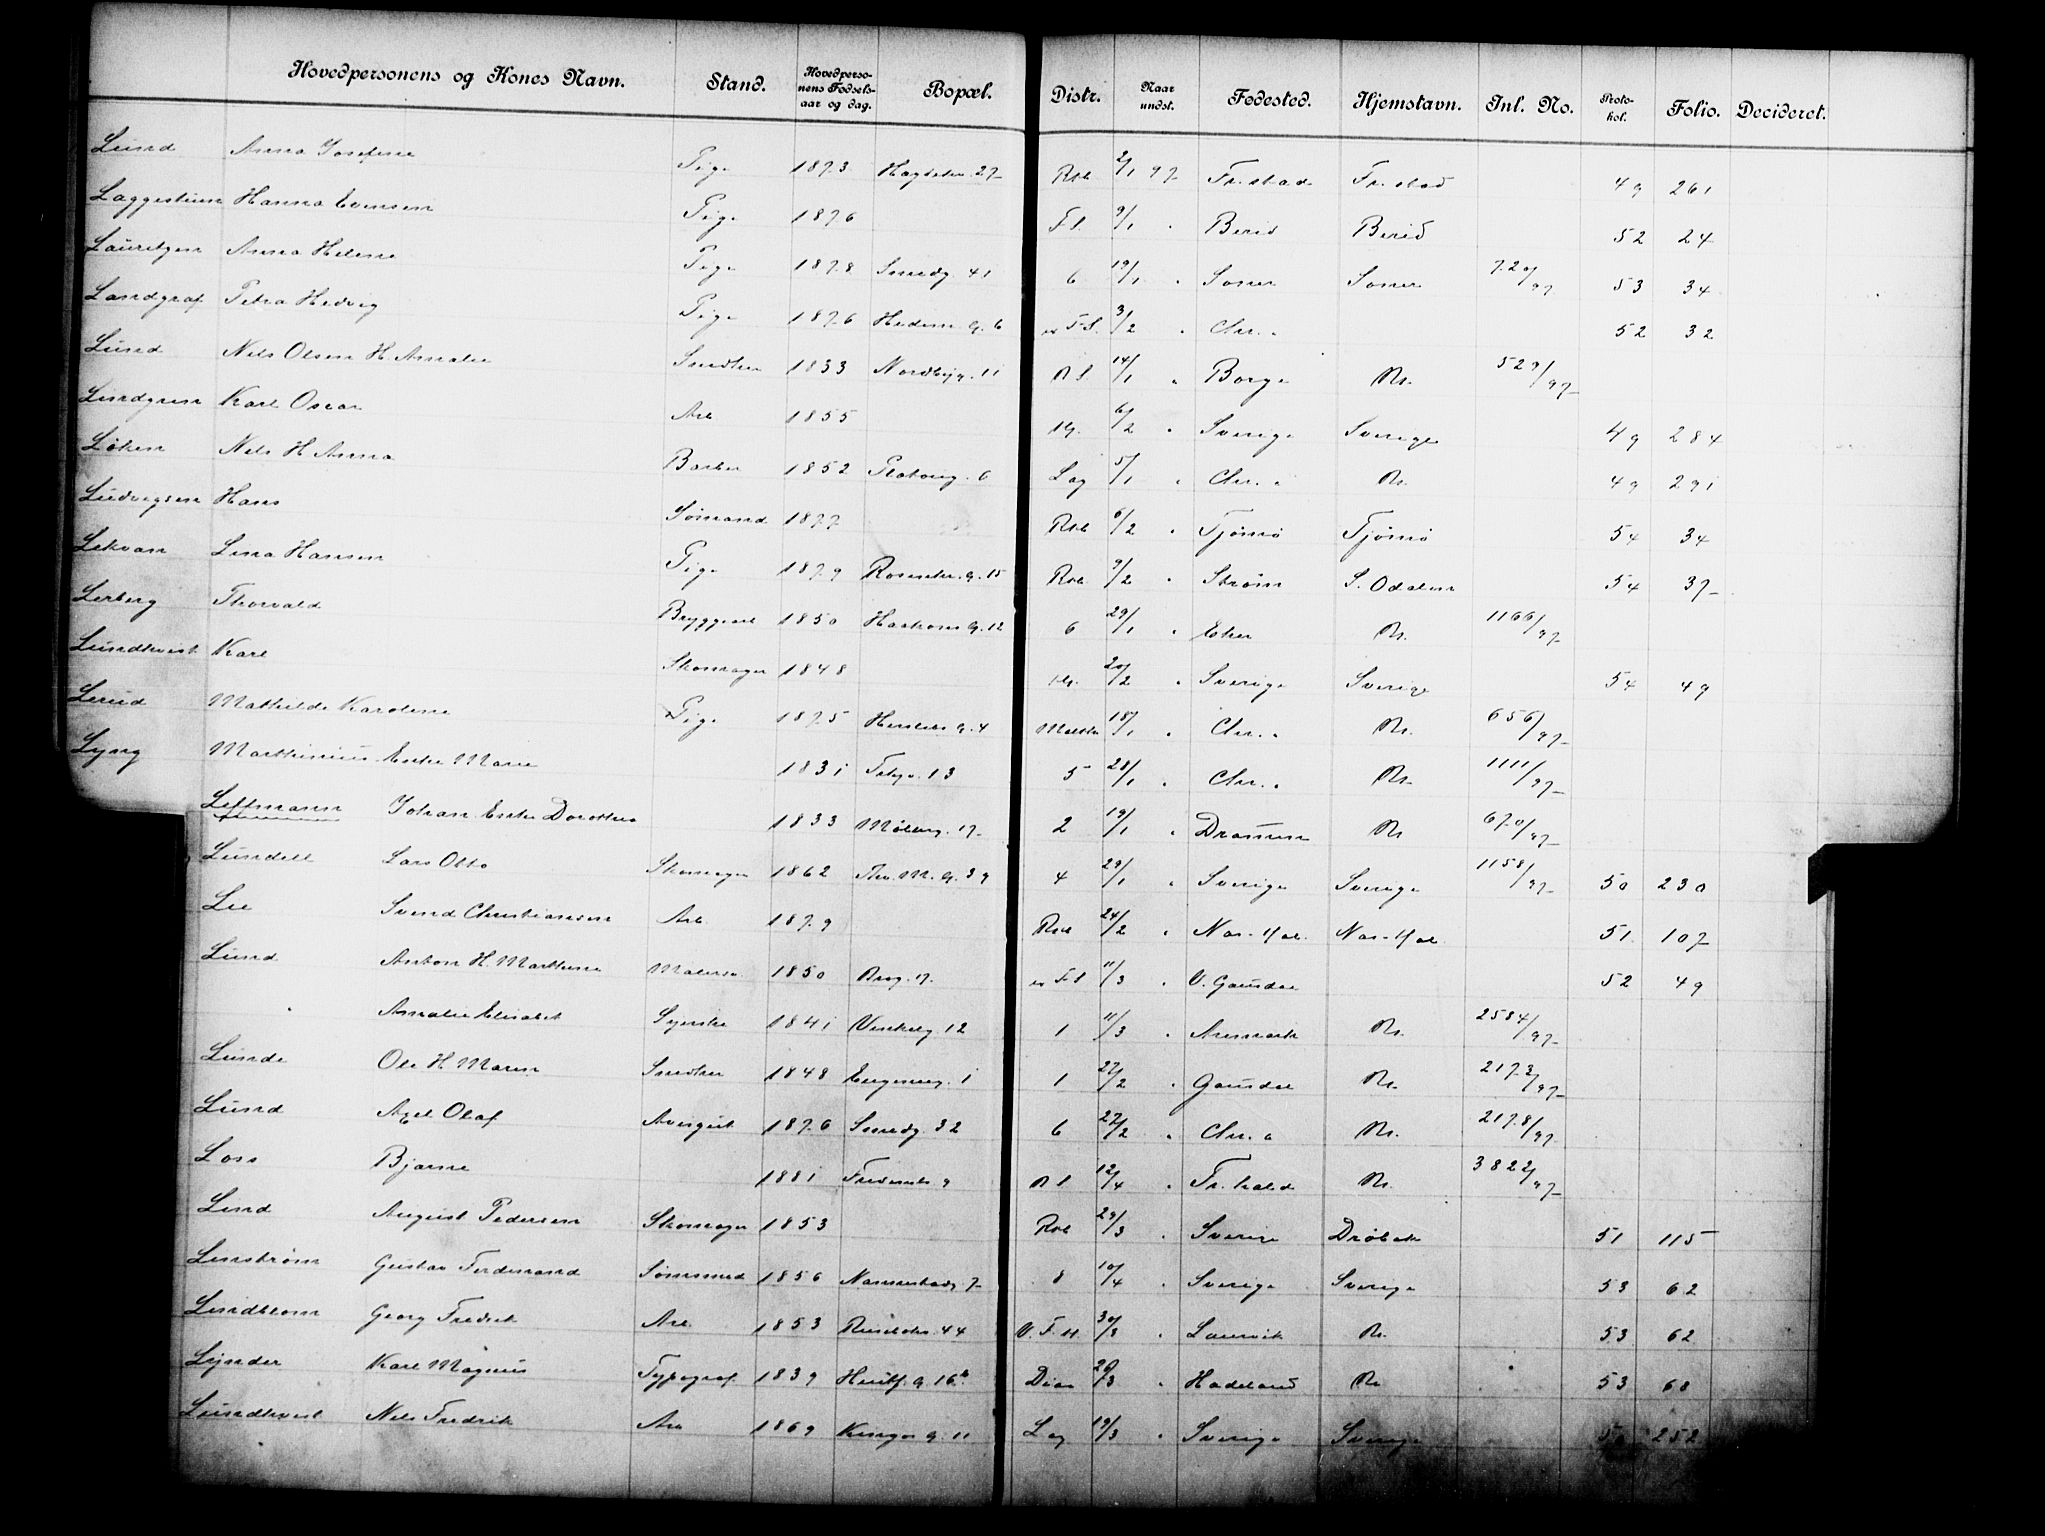 Hovedpersonens og Kones Navn. Stand. Hovedperso-nens Fødsels-aar og dag. Bopæl. Distr. Naar undst. Fødested. Hjemstavn. Inl. No. Proto-kol. Folio. Decideret.
Lund Anna Josefine Pige 1873 27 Rst 2/1 97 Fr.stad Fr.stad 49 261
Laggesteen Hanna Evensen Pige 1876 Fl. 9/1 " Berid Berid 52 24
Lauritzen Anna Helene Pige 1878 Smedg. 41 6 19/1 " Soner Soner 720/97 53 34
Landgraf Petra Hedvig Pige 1876 Hedem G. 6 3/2 " Chr.a 52 32
Lund Nils Olsen H. Amalie Snedker 1833 Nordbyg. 11 14/1 " Borge N. 529/97
Lindgren Karl Oscar Arb 1855 6/2 " Sverige Sverige 49 284
Løken Nils H. Anna Barber 1852 6 Lag 5/1 " Chr.a N. 49 291
Ludvigsen Hans Sømand 1877 6/2 " Tjømø Tjømø 54 34
Lekvan Lina Hansen Pige 1879 Rosenkr. G. 15 9/2 " Strøm S. Odalen 54 37
Lerberg Thorvald Bryggeri 1850 Haakons G. 12 6 29/1 " Eker N. 1166/97
Lundkvist Karl Skomager 1848 20/2 " Sverige Sverige 54 49
Lerud Mathilde Karoline Pige 1875 G. 4 18/1 " Chr.a N. 656/97
Lyng Marthinius Enke Marie 1831 13 5 28/1 " Chr.a N. 1111/97
Leffmann Johan Enke Dorothea 1833 Møllerg. 17 2 19/1 " Drammen N. 670/97
Lundell Lars Otto Skomager 1862 Thv. M. G. 39 4 29/1 " Sverige Sverige 1158/97 50 230
Lie Svend Christiansen Arb. 1879 24/2 " 51 107
Lund Anton H. Marthine Malersv. 1850 17 11/3 " V. Gausdal 52 49
" Amalie Elisabet Syerske 1841 Vinkelg. 12 1 11/3 " Aremark N. 2584/97
Lunde Ole H. Maren Snedker 1848 Enggang. 1 1 27/2 " Gausdal N. 2173/97
Lund Axel Olaf Avisgut 1876 Smedg. 32 6 27/2 " Chr.a N. 2178/97
Loss Bjarne 1881 9 12/4 " Fr.hald N. 3822/97
Lind August Pedersen Skomager 1853 29/3 " Sverige Drøbak 51 115
Linstrøm Gustav Ferdinand Sømmed 1856 Nannestadg. 7 8 10/4 " Sverige Sverige 53 62
Lindblom Georg Fredrik Arb 1853 Ruseløkv. 44 V.F.H. 30/3 " Laurvik N. 53 62
Lynder Karl Magnus Typograf 1839 Huitf. G. 16b Dia 26/3 " Hadeland N. 53 68
Lundkvist Nils Fredrik Arb 1869 Kings G. 11 Lag 19/3 " Sverige Sverige 252